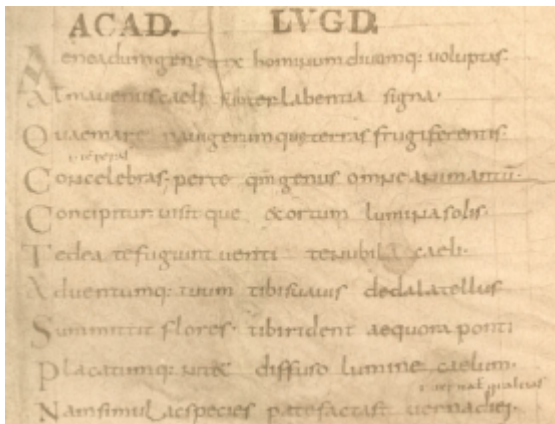 ACAD. LVGD.
Aeneadum genetrix hominum diuomq: voluptas.
Alma venus caeli subter labentia signa.
Quae mare nauigerum que terras frugiferentis.
Concelebras. perte qm genus omne animantu.
Concipitur uisit que exortum lumina solis.
Te dea te fugiunt uenti te nubila caeli.
Aduentumq: tuum tibi suauis dedala tellus
Summittit flores. tibi rident aequora ponti
Placatumq: nitet diffuso lumine caelum.
Nam simul ac species patefactast uerna diei.